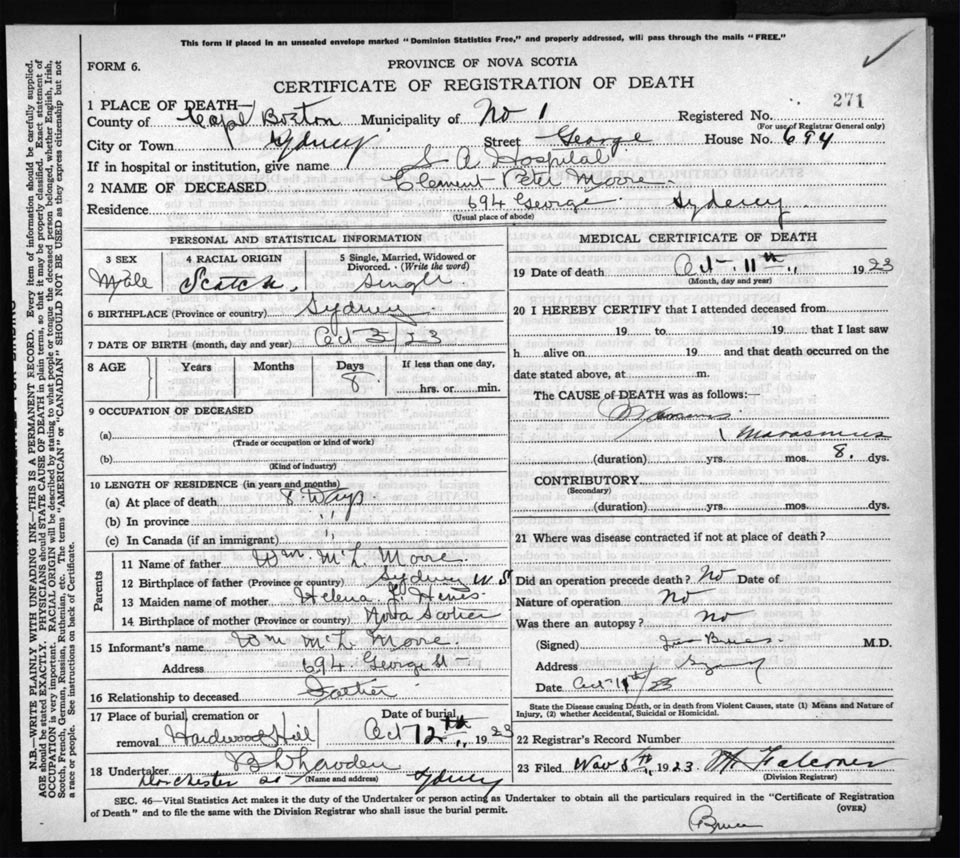 This form if placed in an unsealed envelope marked "Dominion Statistics Free," and properly addressed, will pass through the mails "FREE."
FORM 6.
PROVINCE OF NOVA SCOTIA
CERTIFICATE OF REGISTRATION OF DEATH
271
1 PLACE OF DEATH—
County of Cape Breton Municipality of No 1 Registered No.
(For use of Registrar General only)
City or Town Sydney Street George House No. 694
If in hospital or institution, give name S A Hospital
2 NAME OF DECEASED Clement Peter Moore
Residence 694 George Sydney
(Usual place of abode)
PERSONAL AND STATISTICAL INFORMATION
3 SEX 4 RACIAL ORIGIN 5 Single, Married, Widowed or Divorced. (Write the word)
Male Scotch. Single
6 BIRTHPLACE (Province or country) Sydney
7 DATE OF BIRTH (month, day and year) Oct 3/23
8 AGE Years Months Days If less than one day,
8. hrs. or min.
9 OCCUPATION OF DECEASED
(a)
(Trade or occupation or kind of work)
(b)
(Kind of industry)
10 LENGTH OF RESIDENCE (in years and months)
(a) At place of death 8 Days
(b) In province "
(c) In Canada (if an immigrant) "
Parents
11 Name of father Wm. McL. Moore
12 Birthplace of father (Province or country) Sydney
13 Maiden name of mother Helena
14 Birthplace of mother (Province or country) Nova Scotia
15 Informant's name Wm McL. Moore
Address 694 George St
16 Relationship to deceased Father
17 Place of burial, cremation or removal Hardwood Hill
Date of burial Oct 12th 1923
18 Undertaker
(Name and address)
Dorchester St Sydney
MEDICAL CERTIFICATE OF DEATH
19 Date of death Oct. 11th 1923
(Month, day and year)
20 I HEREBY CERTIFY that I attended deceased from
19 to 19 that I last saw
h alive on 19 and that death occurred on the
date stated above, at m.
The CAUSE of DEATH was as follows:—
Marasmus
(duration) yrs. mos. 8. dys.
CONTRIBUTORY
(Secondary)
(duration) yrs. mos. dys.
21 Where was disease contracted if not at place of death?
Did an operation precede death? No Date of
Nature of operation No
Was there an autopsy? No
(Signed) M.D.
Address Sydney
Date Oct
State the Disease causing Death, or in death from Violent Causes, state (1) Means and Nature of Injury, (2) whether Accidental, Suicidal or Homicidal.
22 Registrar's Record Number
23 Filed Nov 5th 1923 Falconer
(Division Registrar)
SEC. 46—Vital Statistics Act makes it the duty of the Undertaker or person acting as Undertaker to obtain all the particulars required in the "Certificate of Registration
of Death" and to file the same with the Division Registrar who shall issue the burial permit.
(OVER)
Bruce
N.B.—WRITE PLAINLY WITH UNFADING INK—THIS IS A PERMANENT RECORD. Every item of information should be carefully supplied.
AGE should be stated EXACTLY. PHYSICIANS should STATE CAUSE OF DEATH in plain terms, so that it may be properly classified. Exact statement of
OCCUPATION is very important. RACIAL ORIGIN will be described by stating to what people or tongue the deceased person belonged, whether English, Irish,
Scotch, French, German, Russian, Ruthenian, etc. The terms "AMERICAN" or "CANADIAN" SHOULD NOT BE USED as they express citizenship but not
a race or people. See instructions on back of Certificate.